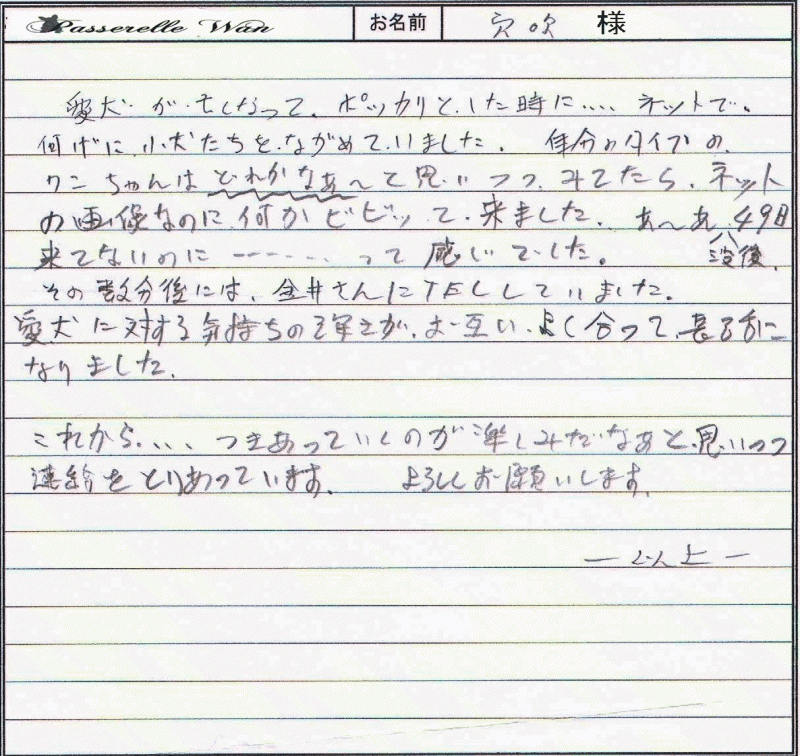 Passerelle Wan お名前 穴吹 様
愛犬が亡くなって、ポッカリとした時に.... ネットで、
何げに小犬たちをながめていました。 自分のタイプの、
ワンちゃんはどれかなぁ〜て思いつつ、みてたら、ネット
の画像なのに、何かビビッて来ました。 あ〜あ、49日
没後、
来てないのに ------- って感じでした。
その数分後には、金井さんにTELしていました。
愛犬に対する気持ちの強さが、お互い、よく合って、長電話に
なりました。
これから... つきあっていくのが楽しみだなあと、思いつつ
連絡をとりあっています。 よろしくお願いします。
― 以上 ―